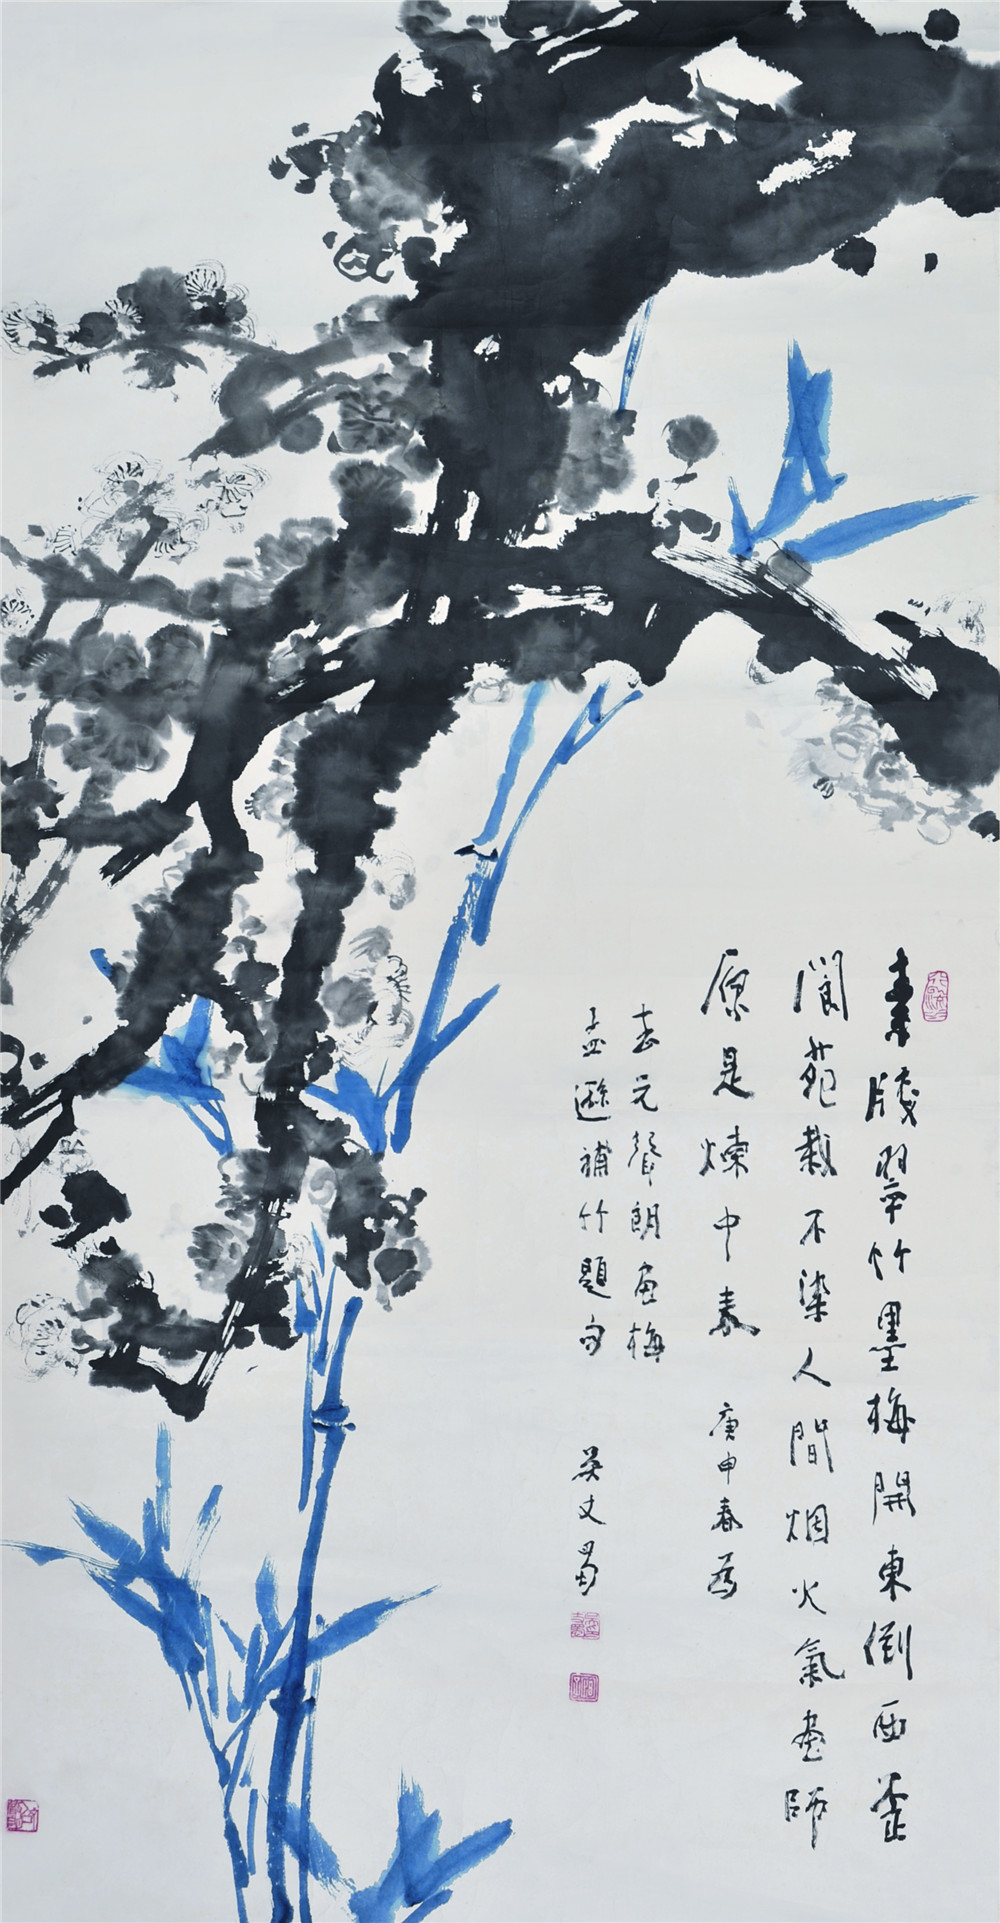 素牋翠竹墨梅開東倒西歪
閬苑栽不染人間烟火氣畫師
原是煉中來 庚申春為
元聲朗畫梅
孟遜補竹題句 吴丈蜀